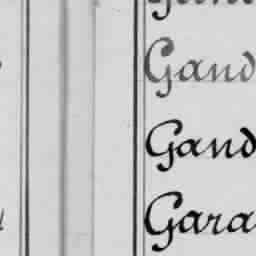 Gand
Gand
Gara